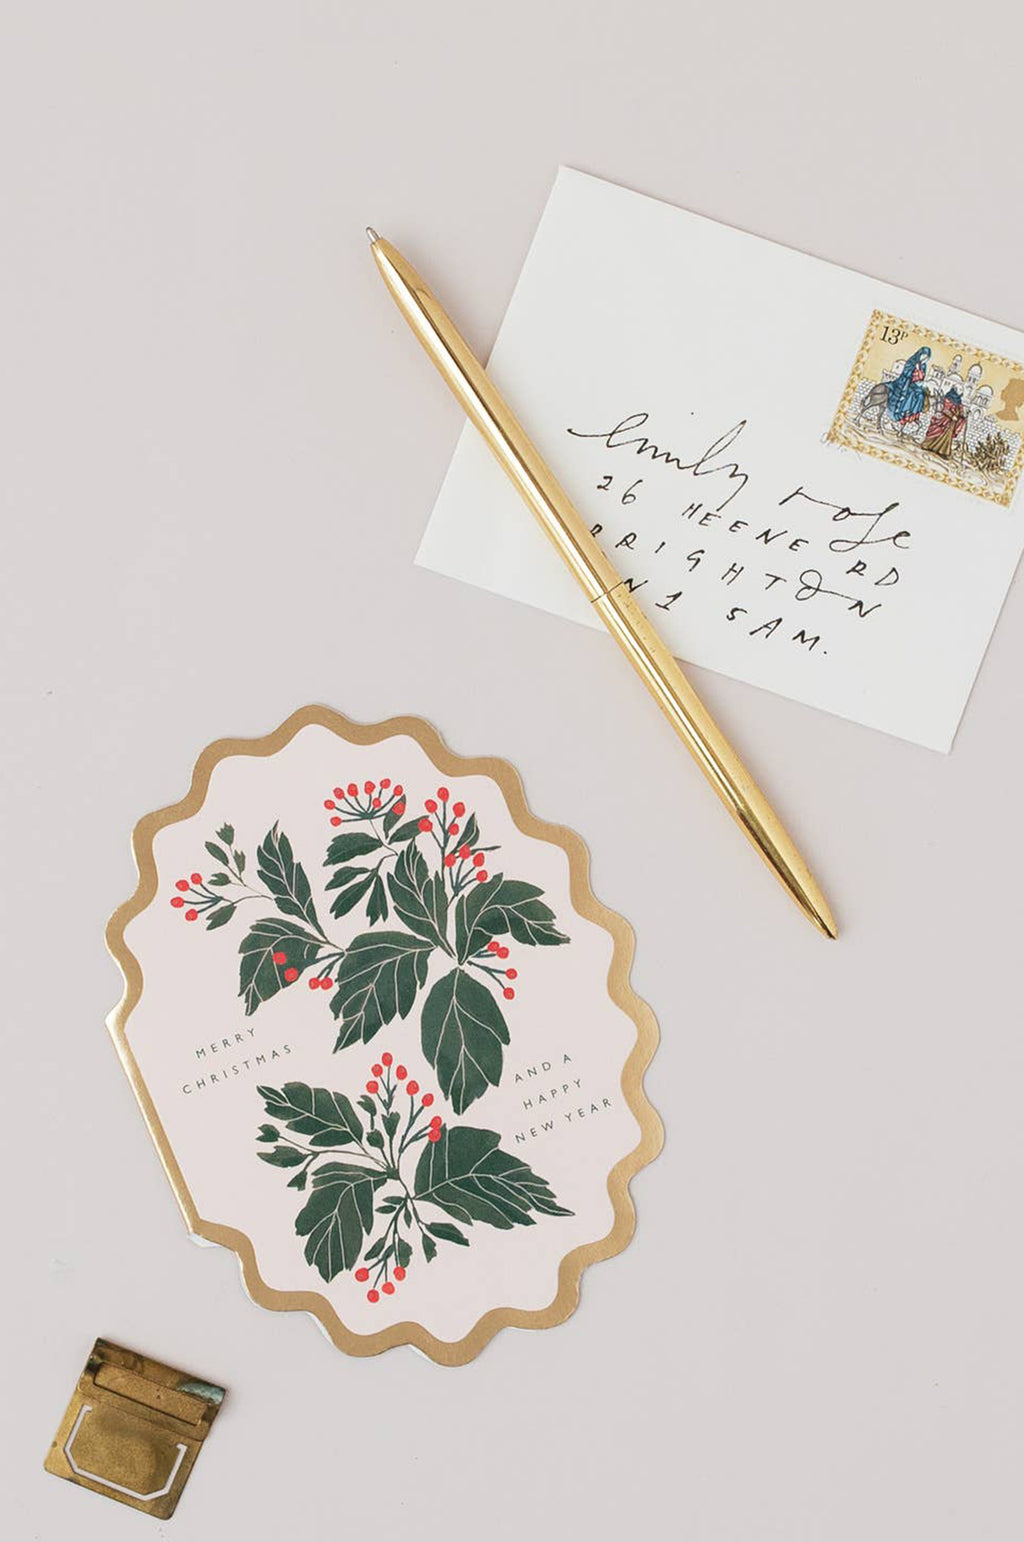 13P
emily rose
26 HEENE RD
BRIGHTON
N1 5AM.
MERRY
CHRISTMAS
AND A
HAPPY
NEW YEAR